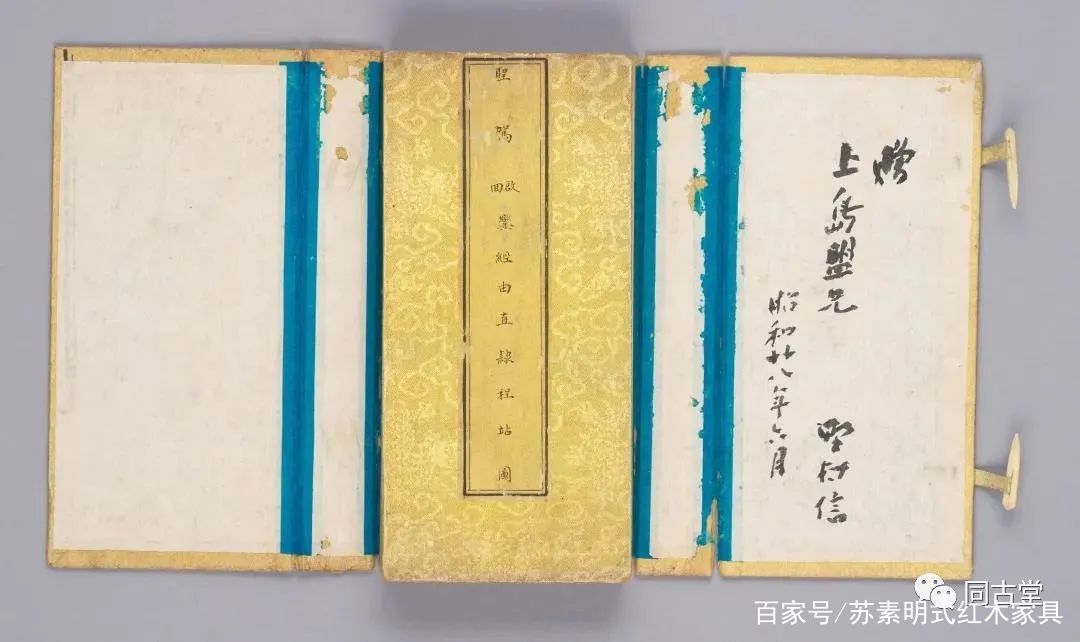 贈
上島盟兄
野村信
昭和廿八年六月
聖駕啟回鑾經由直隸程站圖
同古堂
百家号/苏素明式红木家具